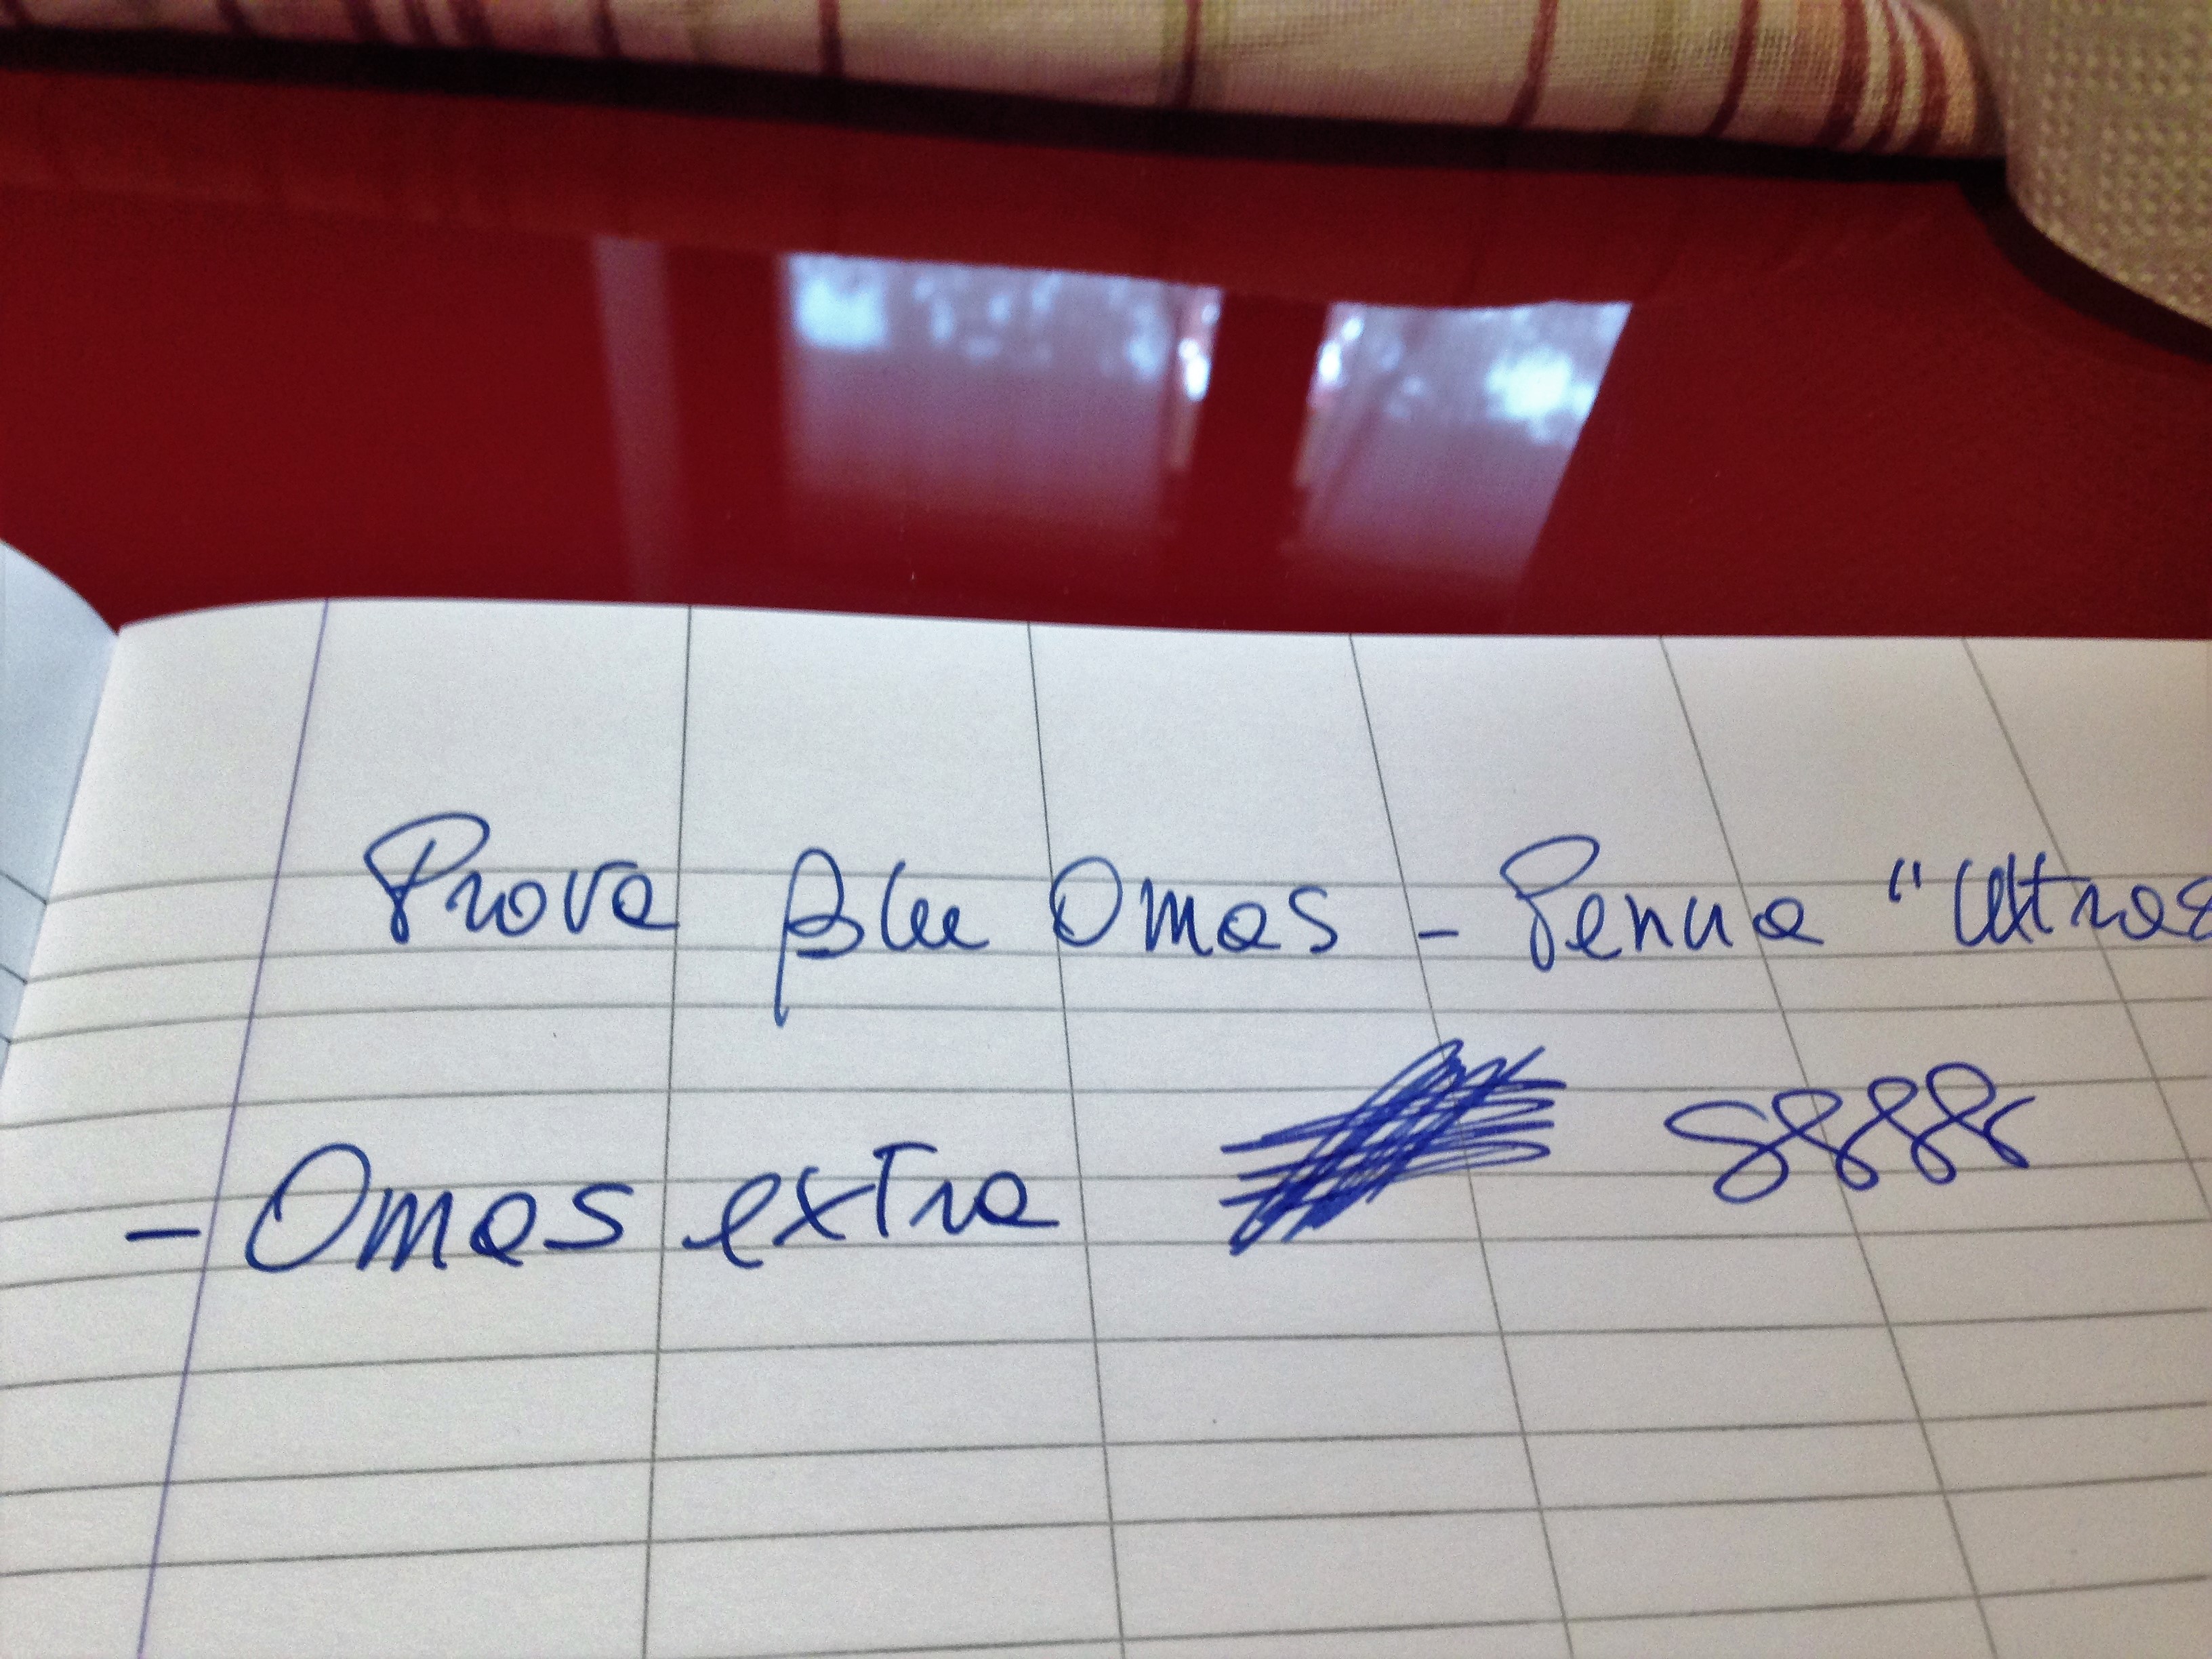 Prova Blu Omas - Penna "Ultras
- Omas extra 888